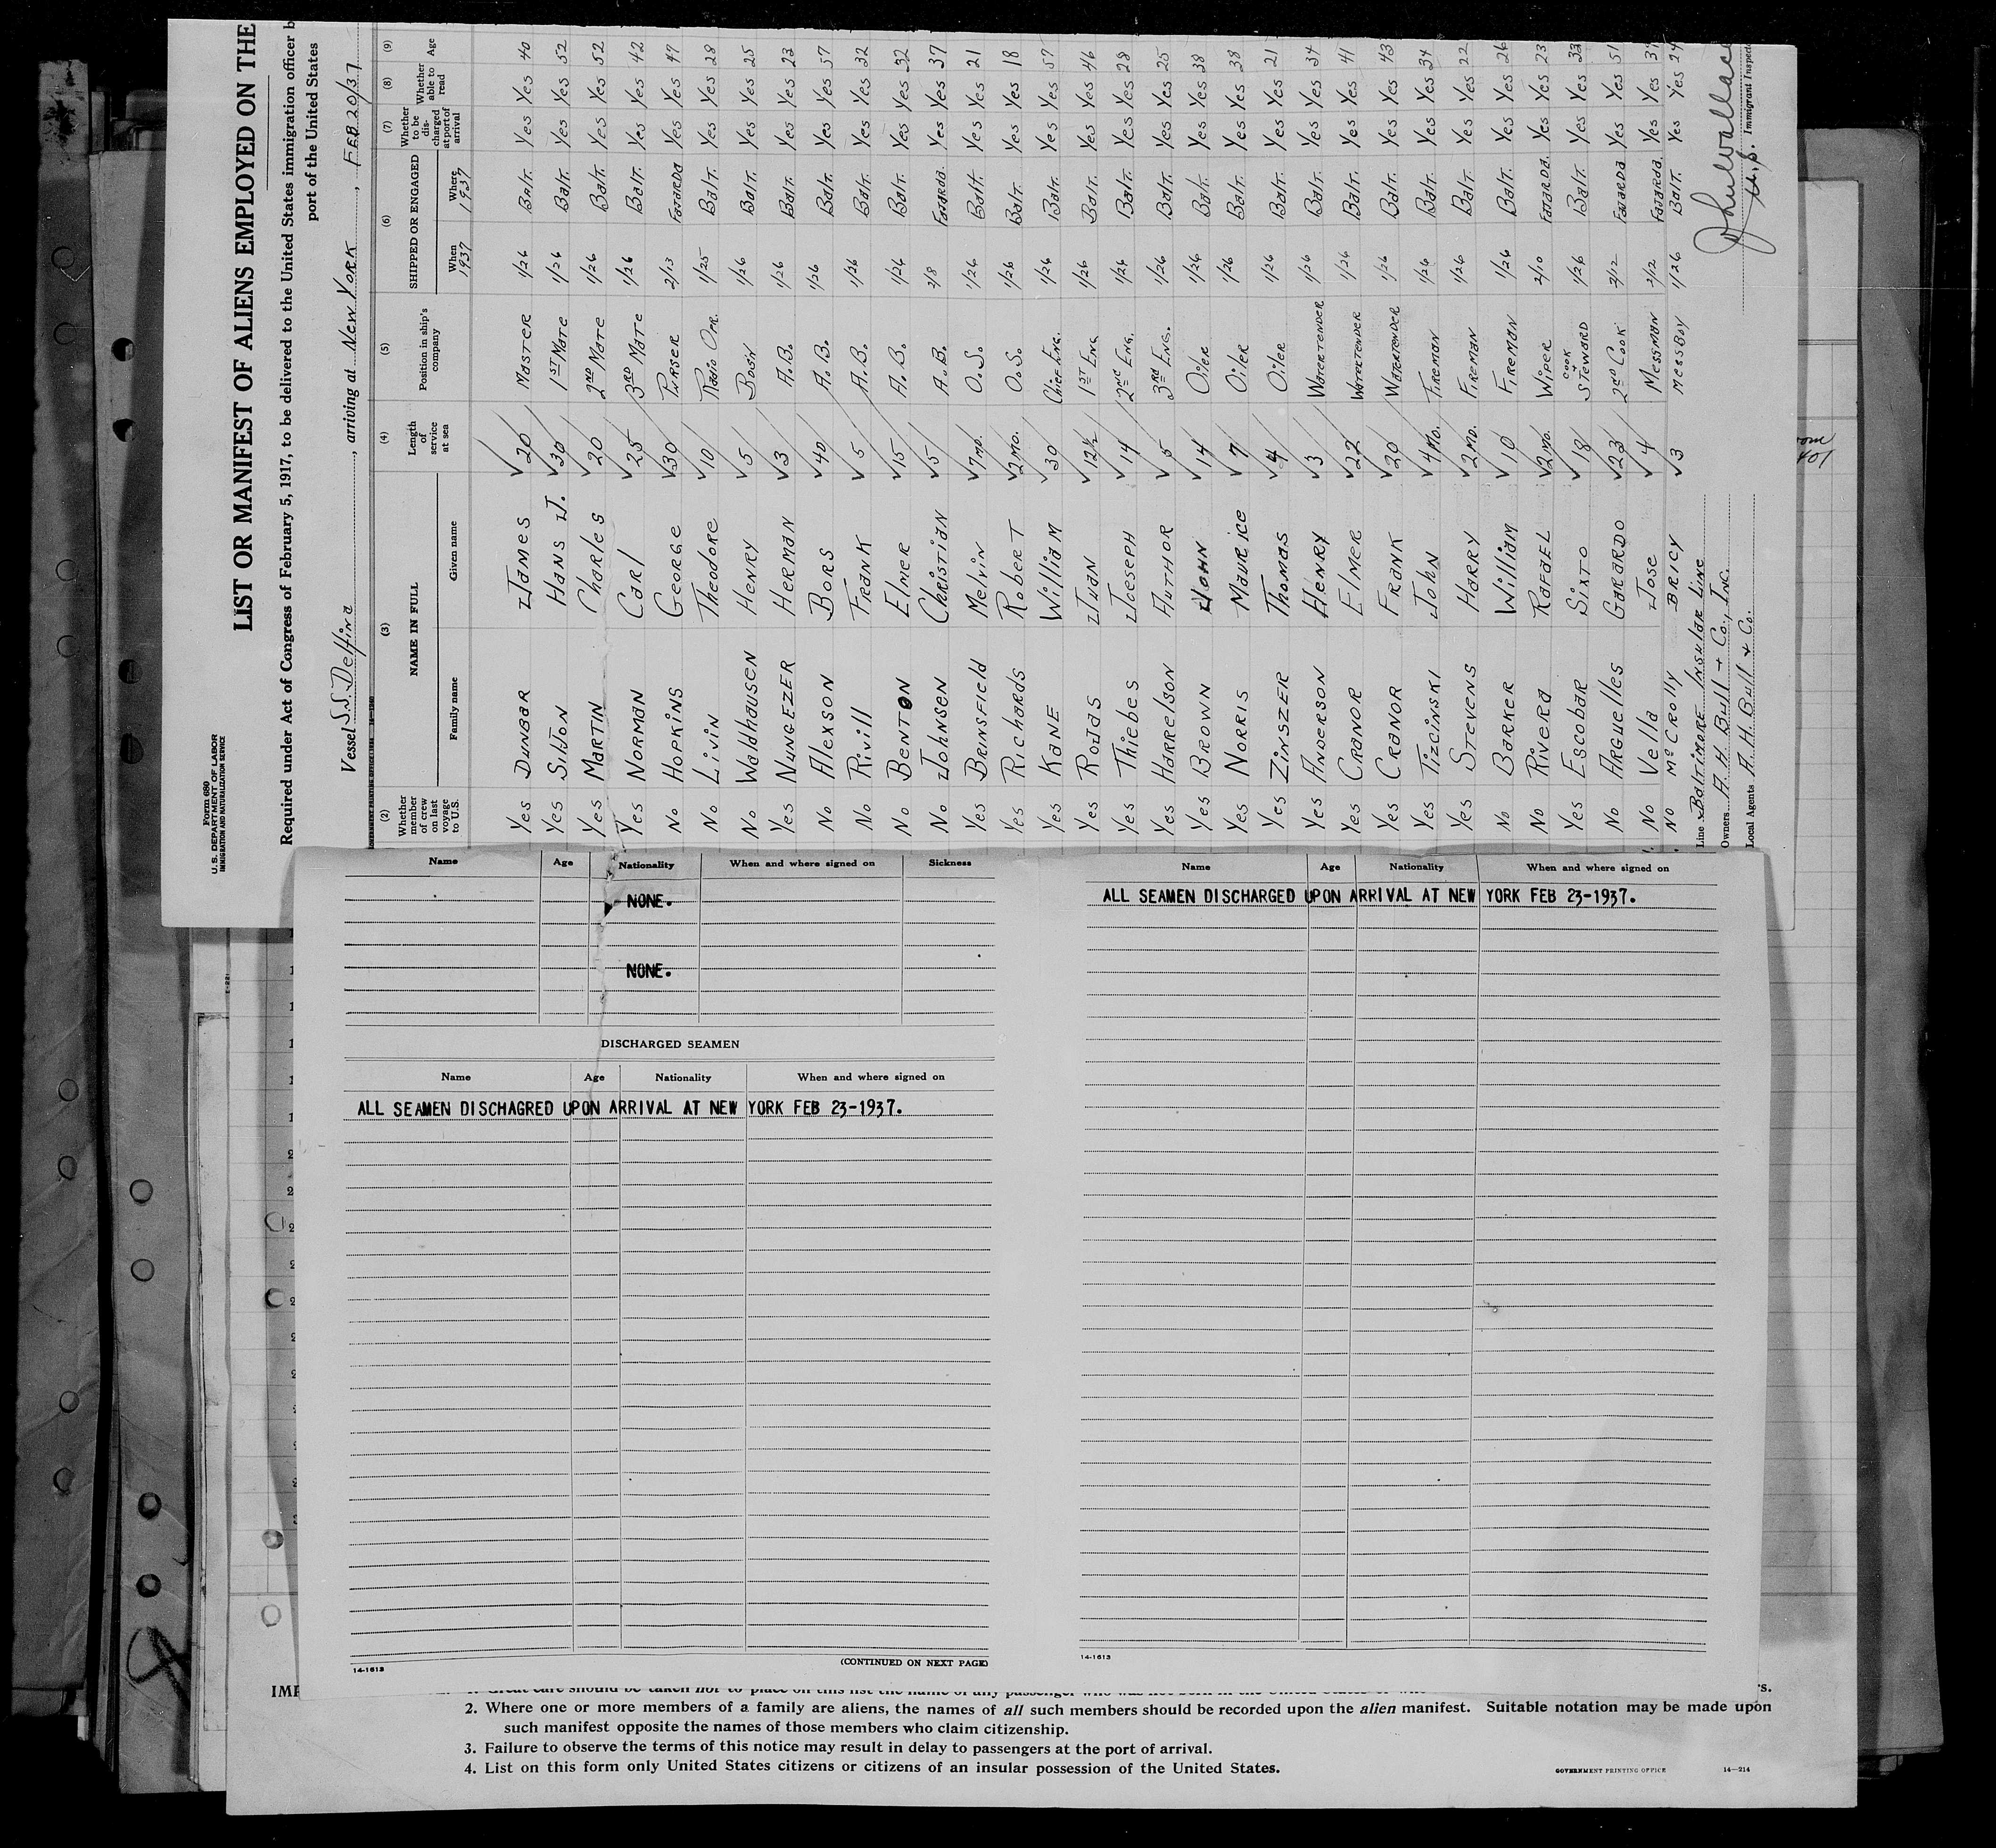 Form 680
U. S. DEPARTMENT OF LABOR
IMMIGRATION AND NATURALIZATION SERVICE
LIST OR MANIFEST OF ALIENS EMPLOYED ON THE
Required under Act of Congress of February 5, 1917, to be delivered to the United States immigration officer b
port of the United States
Vessel S.S. Delfina, arriving at New York, FEB 20/37
(2) (3) (4) (5) (6) (7) (8) (9)
Whether member of crew on last voyage to U.S. NAME IN FULL Family name Given name Length of service at sea Position in ship's company SHIPPED OR ENGAGED When 1937 Where 1937 Whether to be discharged at port of arrival Whether able to read Age
Yes DUNBAR James 20 MASTER 1/26 Balt. Yes Yes 40
Yes Hans J. 30 1ST Mate 1/26 Balt. Yes Yes 52
Yes MARTIN Charles 20 2ND Mate 1/26 Balt. Yes Yes 52
Yes NORMAN Carl 25 3RD Mate 1/26 Balt. Yes Yes 42
No HOPKINS GEORGE 30 PURSER 2/13 Fajarda Yes Yes 47
No LIVIN Theodore 10 Radio Opr. 1/25 Balt. Yes Yes 28
No Waldhausen HENRY 5 Bos'n 1/26 Balt. Yes Yes 25
Yes NUNGEZER HERMAN 3 A.B. 1/26 Balt. Yes Yes 23
No Alexson BORS 40 A.B. 1/26 Balt. Yes Yes 57
No Rivill FRANK 5 A.B. 1/26 Balt. Yes Yes 32
No BENTON ELMER 15 A.B. 1/26 Balt. Yes Yes 32
No Johnsen Christian 5 A.B. 2/8 Fajarda. Yes Yes 37
Yes Brinsfield Melvin 7 mo. O.S. 1/26 Balt. Yes Yes 21
Yes Richards Robert 2 mo. O.S. 1/26 Balt. Yes Yes 18
Yes KANE William 30 Chief Eng. 1/26 Balt. Yes Yes 57
Yes Rojas Juan 12½ 1ST Eng 1/26 Balt. Yes Yes 46
Yes Thiebes Joeseph 14 2ND Eng. 1/26 Balt. Yes Yes 28
Yes Harrelson Author 5 3RD Eng. 1/26 Balt. Yes Yes 25
Yes BROWN JOHN 14 Oiler 1/26 Balt. Yes Yes 38
Yes NORRIS Maurice 7 Oiler 1/26 Balt. Yes Yes 38
Yes ZINSZER Thomas 4 Oiler 1/26 Balt. Yes Yes 21
Yes ANDERSON HENRY 3 Watertender 1/26 Balt. Yes Yes 34
Yes CRANOR ELMER 22 Watertender 1/26 Balt. Yes Yes 41
Yes CRANOR FRANK 20 Watertender 1/26 Balt. Yes Yes 43
Yes Tizcinski John 4 Mo. Fireman 1/26 Balt. Yes Yes 34
Yes Stevens HARRY 2 Mo. Fireman 1/26 Balt. Yes Yes 22
No BARKER William 10 Fireman 1/26 Balt. Yes Yes 26
No Rivera RAFAEL 2 Mo. Wiper 2/10 Fajarda. Yes Yes 23
Yes Escobar Sixto 18 Cook + Steward 1/26 Balt. Yes Yes 33
No Arguelles GARARDO 23 2ND Cook 2/12 Fajarda Yes Yes 51
No Vella Jose 4 Messman 2/12 Fajarda. Yes Yes
No McCrolly BRICY 3 Messboy 1/26 Balt. Yes Yes 24
Line Baltimore Insular Line
Owners A. H. Bull + Co., Inc.
Local Agents A. H. Bull + Co.
John Wallace
U.S. Immigrant Inspec
401
Name Age Nationality When and where signed on Sickness
NONE.
NONE.
DISCHARGED SEAMEN
Name Age Nationality When and where signed on
ALL SEAMEN DISCHAGRED UPON ARRIVAL AT NEW YORK FEB 23-1937.
14-1613
(CONTINUED ON NEXT PAGE)
Name Age Nationality When and where signed on
ALL SEAMEN DISCHARGED UPON ARRIVAL AT NEW YORK FEB 23-1937.
14-1613
IMP
2. Where one or more members of a family are aliens, the names of all such members should be recorded upon the alien manifest. Suitable notation may be made upon
such manifest opposite the names of those members who claim citizenship.
3. Failure to observe the terms of this notice may result in delay to passengers at the port of arrival.
4. List on this form only United States citizens or citizens of an insular possession of the United States.
GOVERNMENT PRINTING OFFICE 14-214